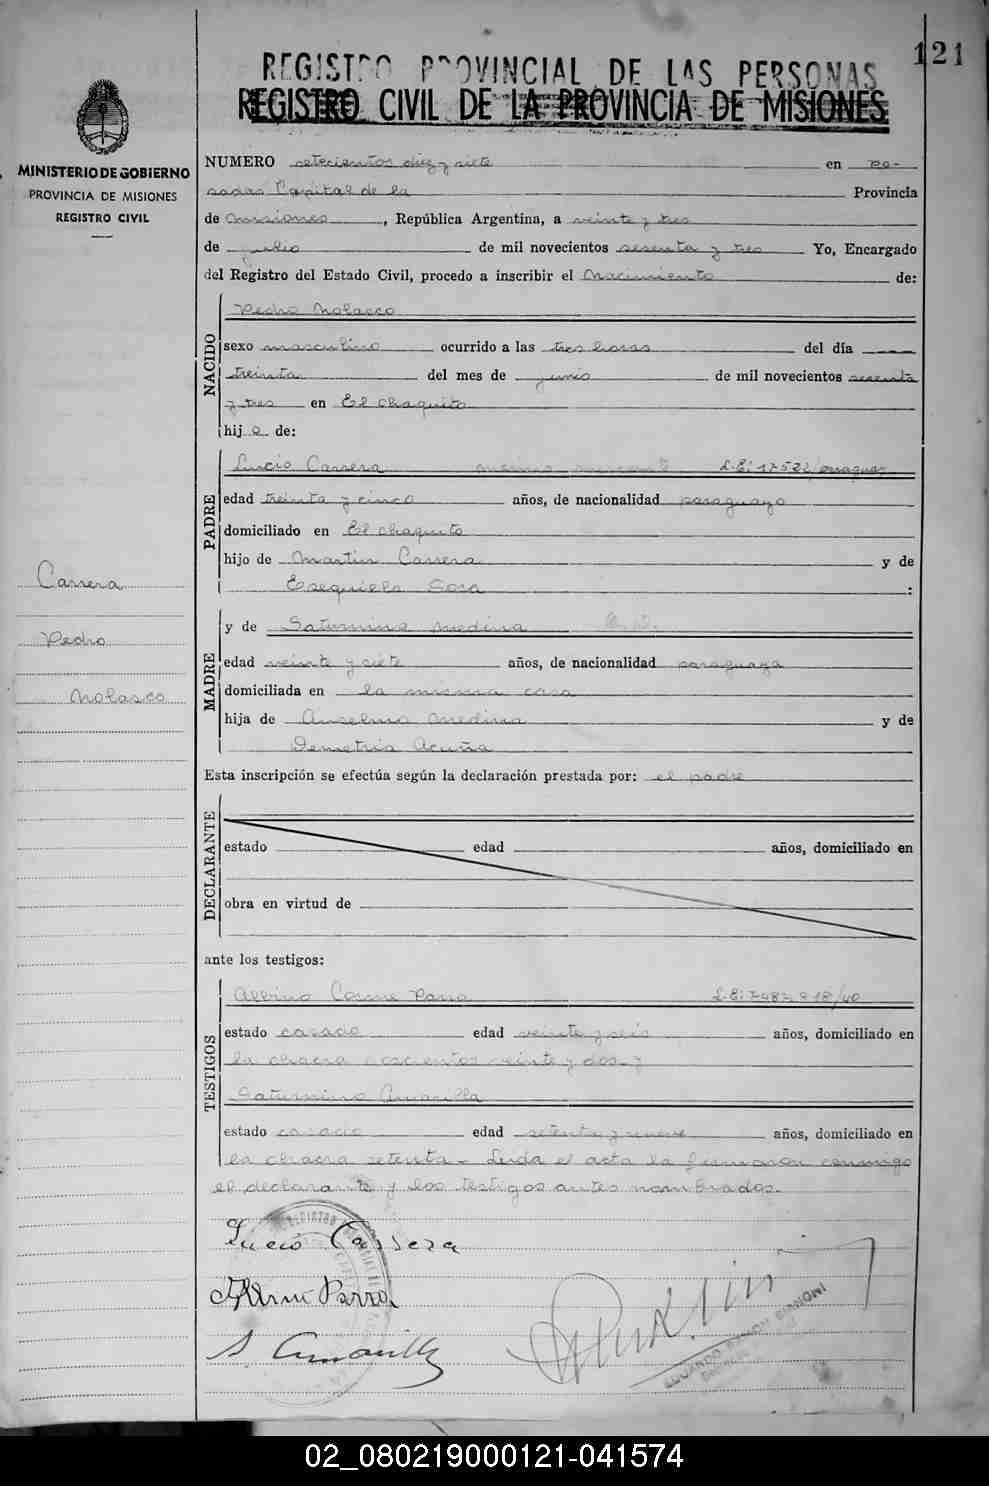 121
REGISTRO PROVINCIAL DE LAS PERSONAS
REGISTRO CIVIL DE LA PROVINCIA DE MISIONES
MINISTERIO DE GOBIERNO
PROVINCIA DE MISIONES
REGISTRO CIVIL
NUMERO setecientos diez y siete en Po-
sadas Capital de la Provincia
de Misiones, República Argentina, a veinte y tres
de julio de mil novecientos sesenta y tres Yo, Encargado
del Registro del Estado Civil, procedo a inscribir el Nacimiento de:
NACIDO
Pedro Nolasco
sexo masculino ocurrido a las tres horas del día
treinta del mes de junio de mil novecientos sesenta
y tres en El Chaquito
hijo de:
PADRE
Lucio Carrera L.E: 17522/paraguay
edad treinta y cinco años, de nacionalidad paraguayo
domiciliado en El Chaquito
hijo de Martin Carrera y de
Esequiela Sosa :
Carrera
Pedro
Nolasco
MADRE
y de Saturnina Medina
edad veinte y siete años, de nacionalidad paraguaya
domiciliada en la misma casa
hija de Anselmo Medina y de
Demetria Acuña
Esta inscripción se efectúa según la declaración prestada por: el padre
DECLARANTE
estado edad años, domiciliado en
obra en virtud de
ante los testigos:
TESTIGOS
Albino Cosme Parra L.E: 7.487.818/40
estado casado edad veinte y seis años, domiciliado en
la chacra doscientos veinte y dos y
Saturnino Amarilla
estado casado edad setenta y nueve años, domiciliado en
la chacra setenta. Leida el acta la firmaron conmigo
el declarante y los testigos antes nombrados.
Lucio Carrera
Parra
S. Amarilla
EDUARDO RAMON BIANCHI
02_080219000121-041574